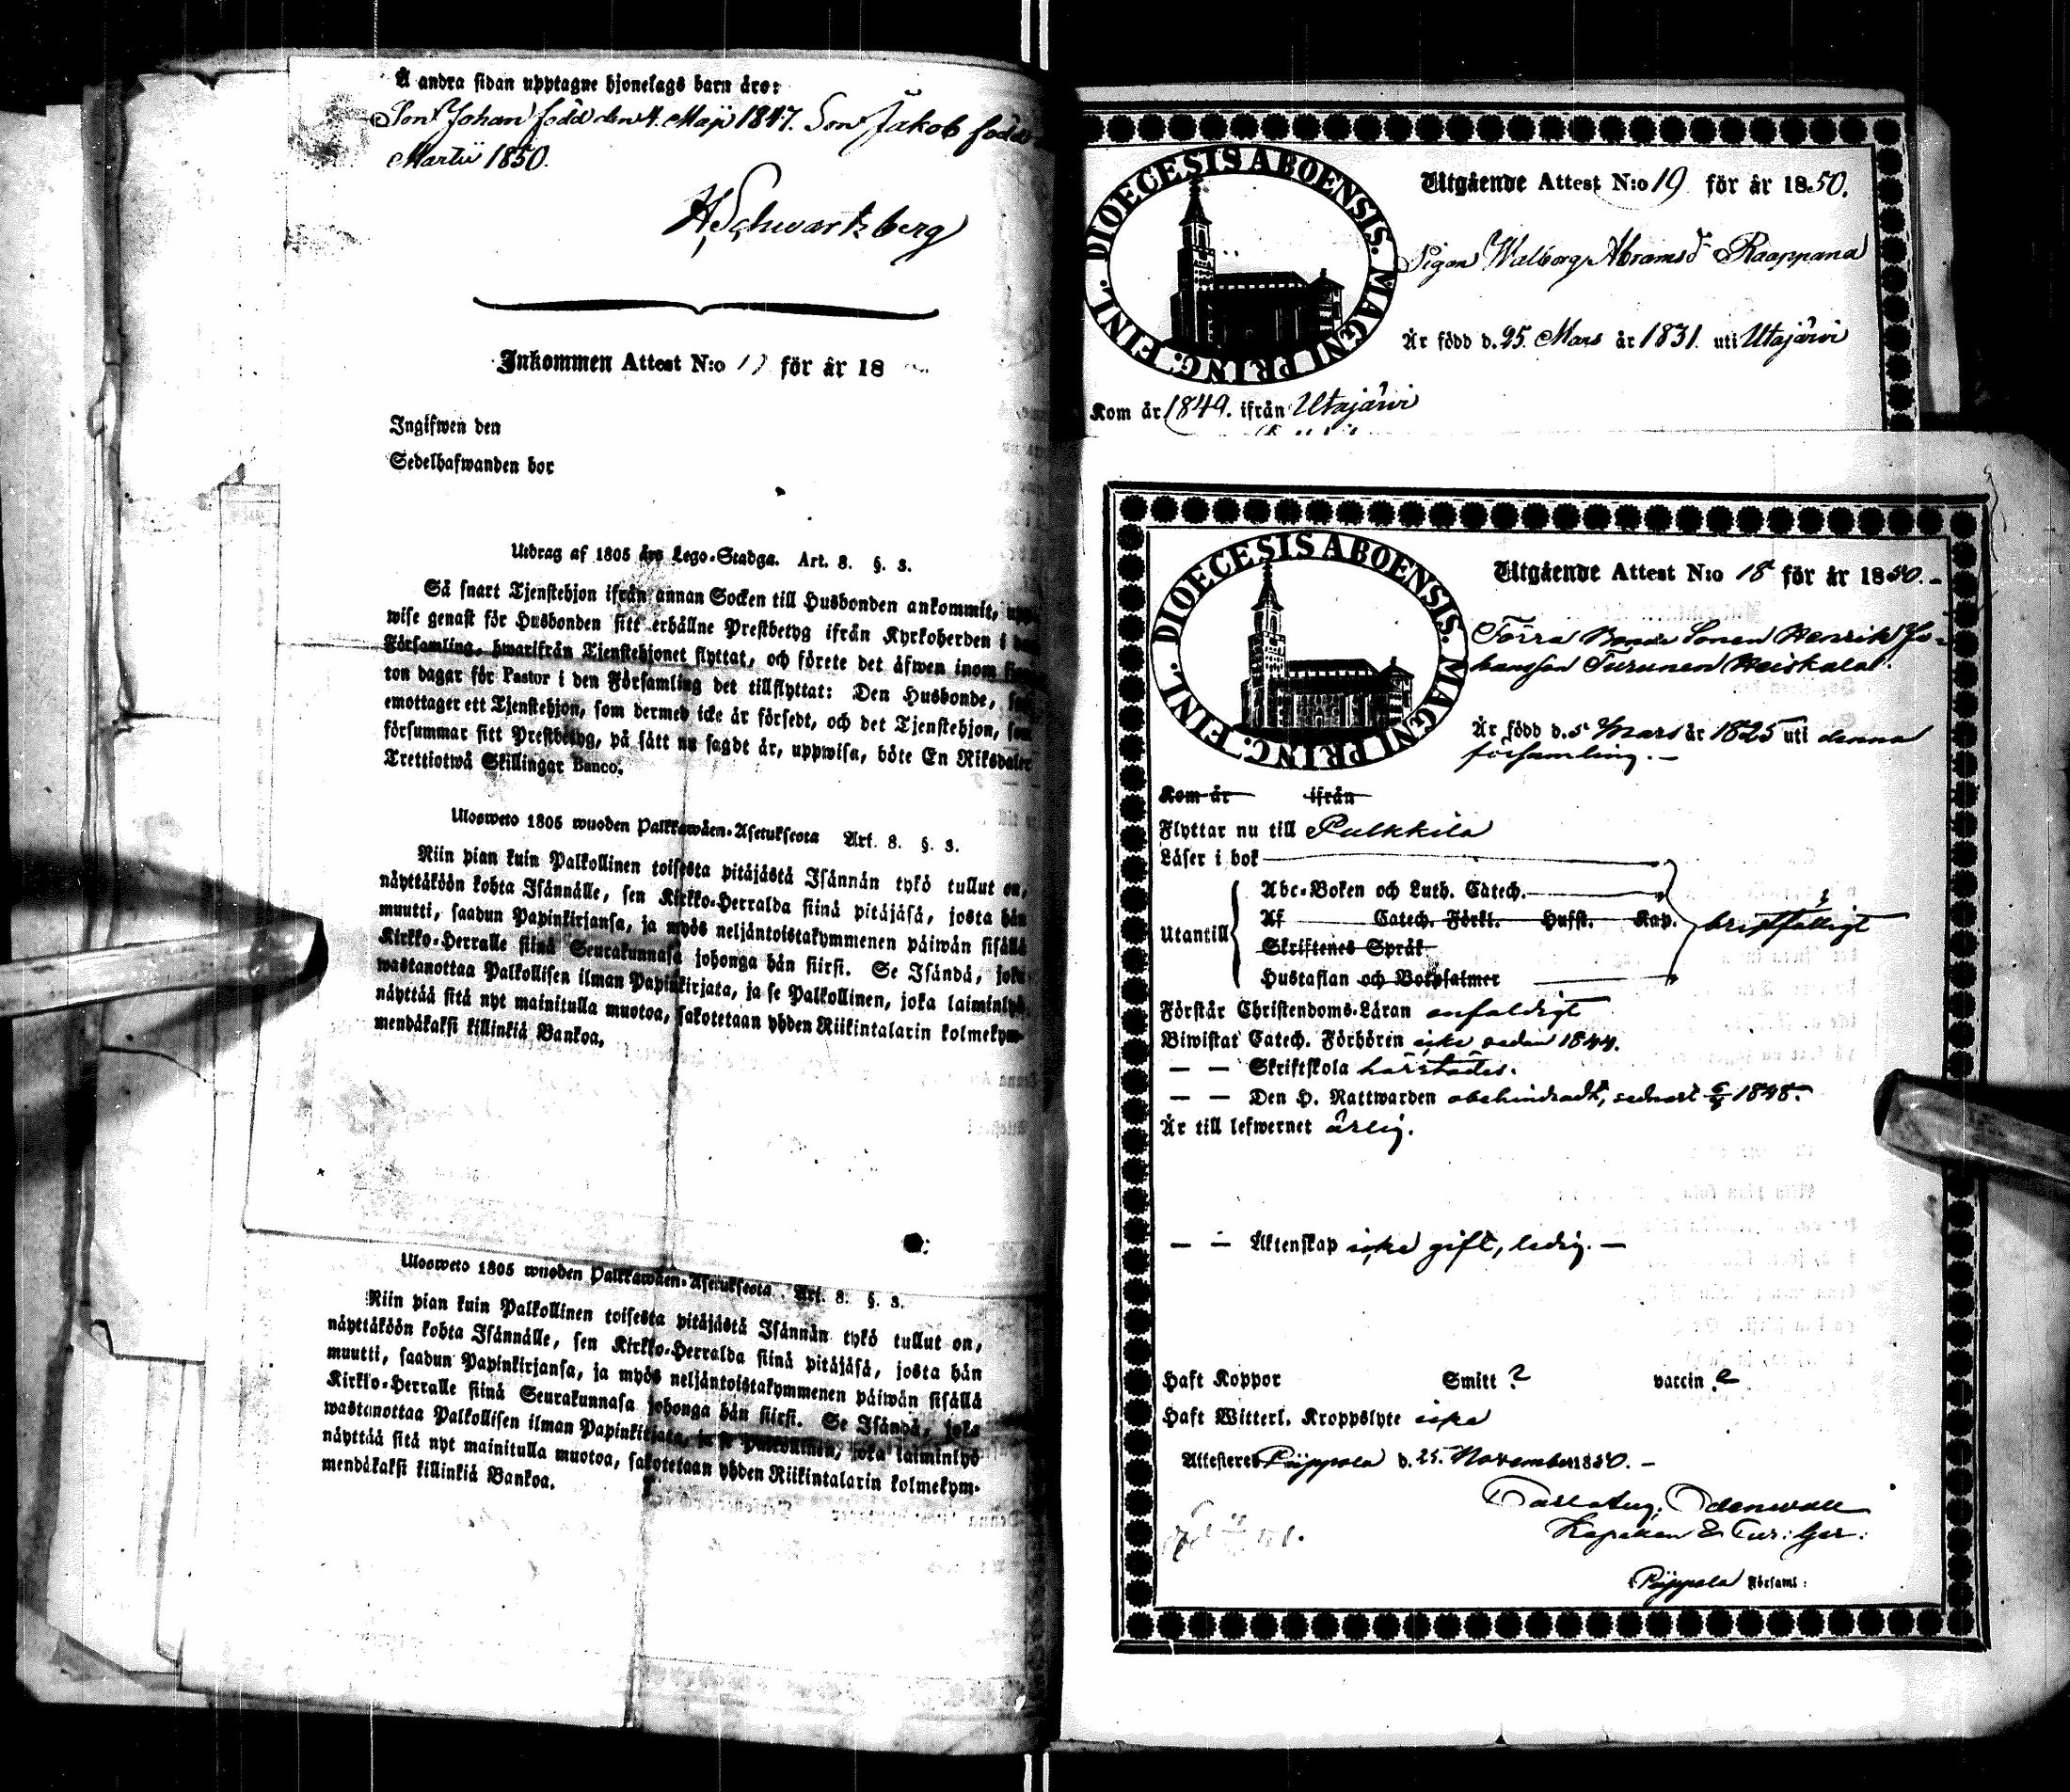 Å andra sidan upptagne hjonelags barn äro:
Son Johan född den 4. Maji 1847. Son Jakob född
Martii 1850.
H. Schwartzberg
Inkommen Attest N:o för år 18
Ingifwen den
Sedelhafwanden bor
Utdrag af 1805 års Lego-Stadga. Art. 8. §. 3.
Så snart Tjenstehjon ifrån annan Socken till Husbonden ankommit, upp-
wise genast för Husbonden sitt erhållne Prestbetyg ifrån Kyrkoherden i den
Församling, hwarifrån Tjenstehjonet flyttat, och förete det äfwen inom fjor-
ton dagar för Pastor i den Församling det tillflyttat: Den Husbonde, som
emottager ett Tjenstehjon, som dermed icke är försedt, och det Tjenstehjon, som
försummar sitt Prestbetyg, på sätt nu sagdt är, uppwisa, böte En Riksdaler
Trettiotwå Skillingar Banco.
Ulosweto 1805 wuoden Palkkawäen-Asetuksesta Art. 8. §. 3.
Niin pian kuin Palkollinen toisesta pitäjästä Isännän tykö tullut on,
näyttäköön kohta Isännälle, sen Kirkko-Herralda siinä pitäjäsä, josta hän
muutti, saadun Papinkirjansa, ja myös neljäntoistakymmenen päiwän sisällä
Kirkko-Herralle siinä Seurakunnasa johonga hän siirsi. Se Isändä, joka
wastanottaa Palkollisen ilman Papinkirjata, ja se Palkollinen, joka laiminlyö
näyttää sitä nyt mainitulla muotoa, sakotetaan yhden Riikintalarin kolmekym-
mendäkaksi killinkiä Bankoa.
Ulosweto 1805 wuoden Palkkawäen-Asetuksesta. Art. 8. §. 3.
Niin pian kuin Palkollinen toisesta pitäjästä Isännän tykö tullut on,
näyttäköön kohta Isännälle, sen Kirkko-Herralda siinä pitäjäsä, josta hän
muutti, saadun Papinkirjansa, ja myös neljäntoistakymmenen päiwän sisällä
Kirkko-Herralle siinä Seurakunnasa johonga hän siirsi. Se Isändä, joka
wastanottaa Palkollisen ilman Papinkirjata, ja se Palkollinen, joka laiminlyö
näyttää sitä nyt mainitulla muotoa, sakotetaan yhden Riikintalarin kolmekym-
mendäkaksi killinkiä Bankoa.
DIOECESIS ABOENSIS. MAGNI PRINC. FINL.
Utgående Attest N:o 19 för år 1850.
Pigan Walborg Abramsd:r Raappana
Är född d. 25 Mars år 1831. uti Utajärvi
Kom år 1849. ifrån Utajärvi
DIOECESIS ABOENSIS. MAGNI PRINC. FINL.
Utgående Attest N:o 18 för år 1850.-
Förra Bonde Sonen Henrik Jo-
hansson Turunen Heiskala.
Är född d. 5 Mars år 1825 uti denna
församling.-
Kom år ifrån
Flyttar nu till Pulkkila
Läser i bok
Abc-Boken och Luth. Catech.
Utantill Af Catech. Förkl. Husst. Kap. bristfälligt
Skriftenes Språk
Hustaflan och Botpsalmer
Förstår Christendoms-Läran enfaldigt
Biwistat Catech. Förhören icke sedan 1844.
— — Skriftskola härstädes.
— — Den H. Nattwarden obehindradt, sednast 1848.
Är till lefwernet ärlig.
— — Äktenskap icke gift, ledig.-
Haft Koppor Smitt ? vaccin ?
Haft Witterl. Kroppslyte icke
Attesterar Piippola d. 25. November 1850.-
Carl Aug. Odenwall
Kapellan & Tur: Ger:
i Piippola Församl: